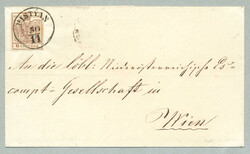 PISTYÁN
30
11
An die löbl: Niederösterreichische Es=
compt=Gesellschaft in
Wien